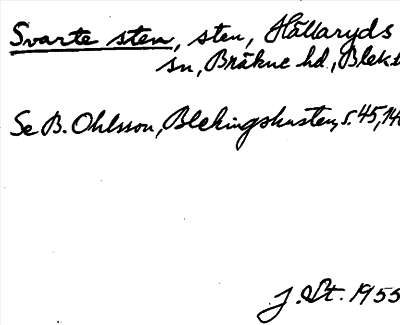 Svarte sten, sten, Hällaryds
sn, Bräkne hd, Blek
Se B. Ohlsson, Blekingskusten, s. 45, 14
J. St. 1955